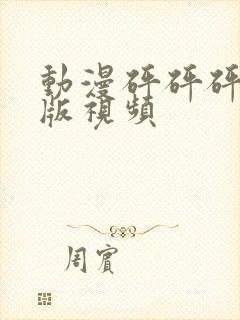 動漫砰砰砰
版視頻
周賓